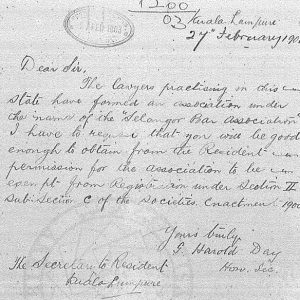 1300
03
Kuala Lumpure
27th February 190
Dear Sir,
The lawyers practising in this
state have formed an association under
the name of the "Selangor Bar Association"
I have to request that you will be good
enough to obtain from the Resident
permission for the association to be
exempt from Registration under Section II
Subsection C of the Societies Enactment 190
Yours truly.
Harold Day
Hon. Sec.
The Secretary to Resident
Kuala Lumpure